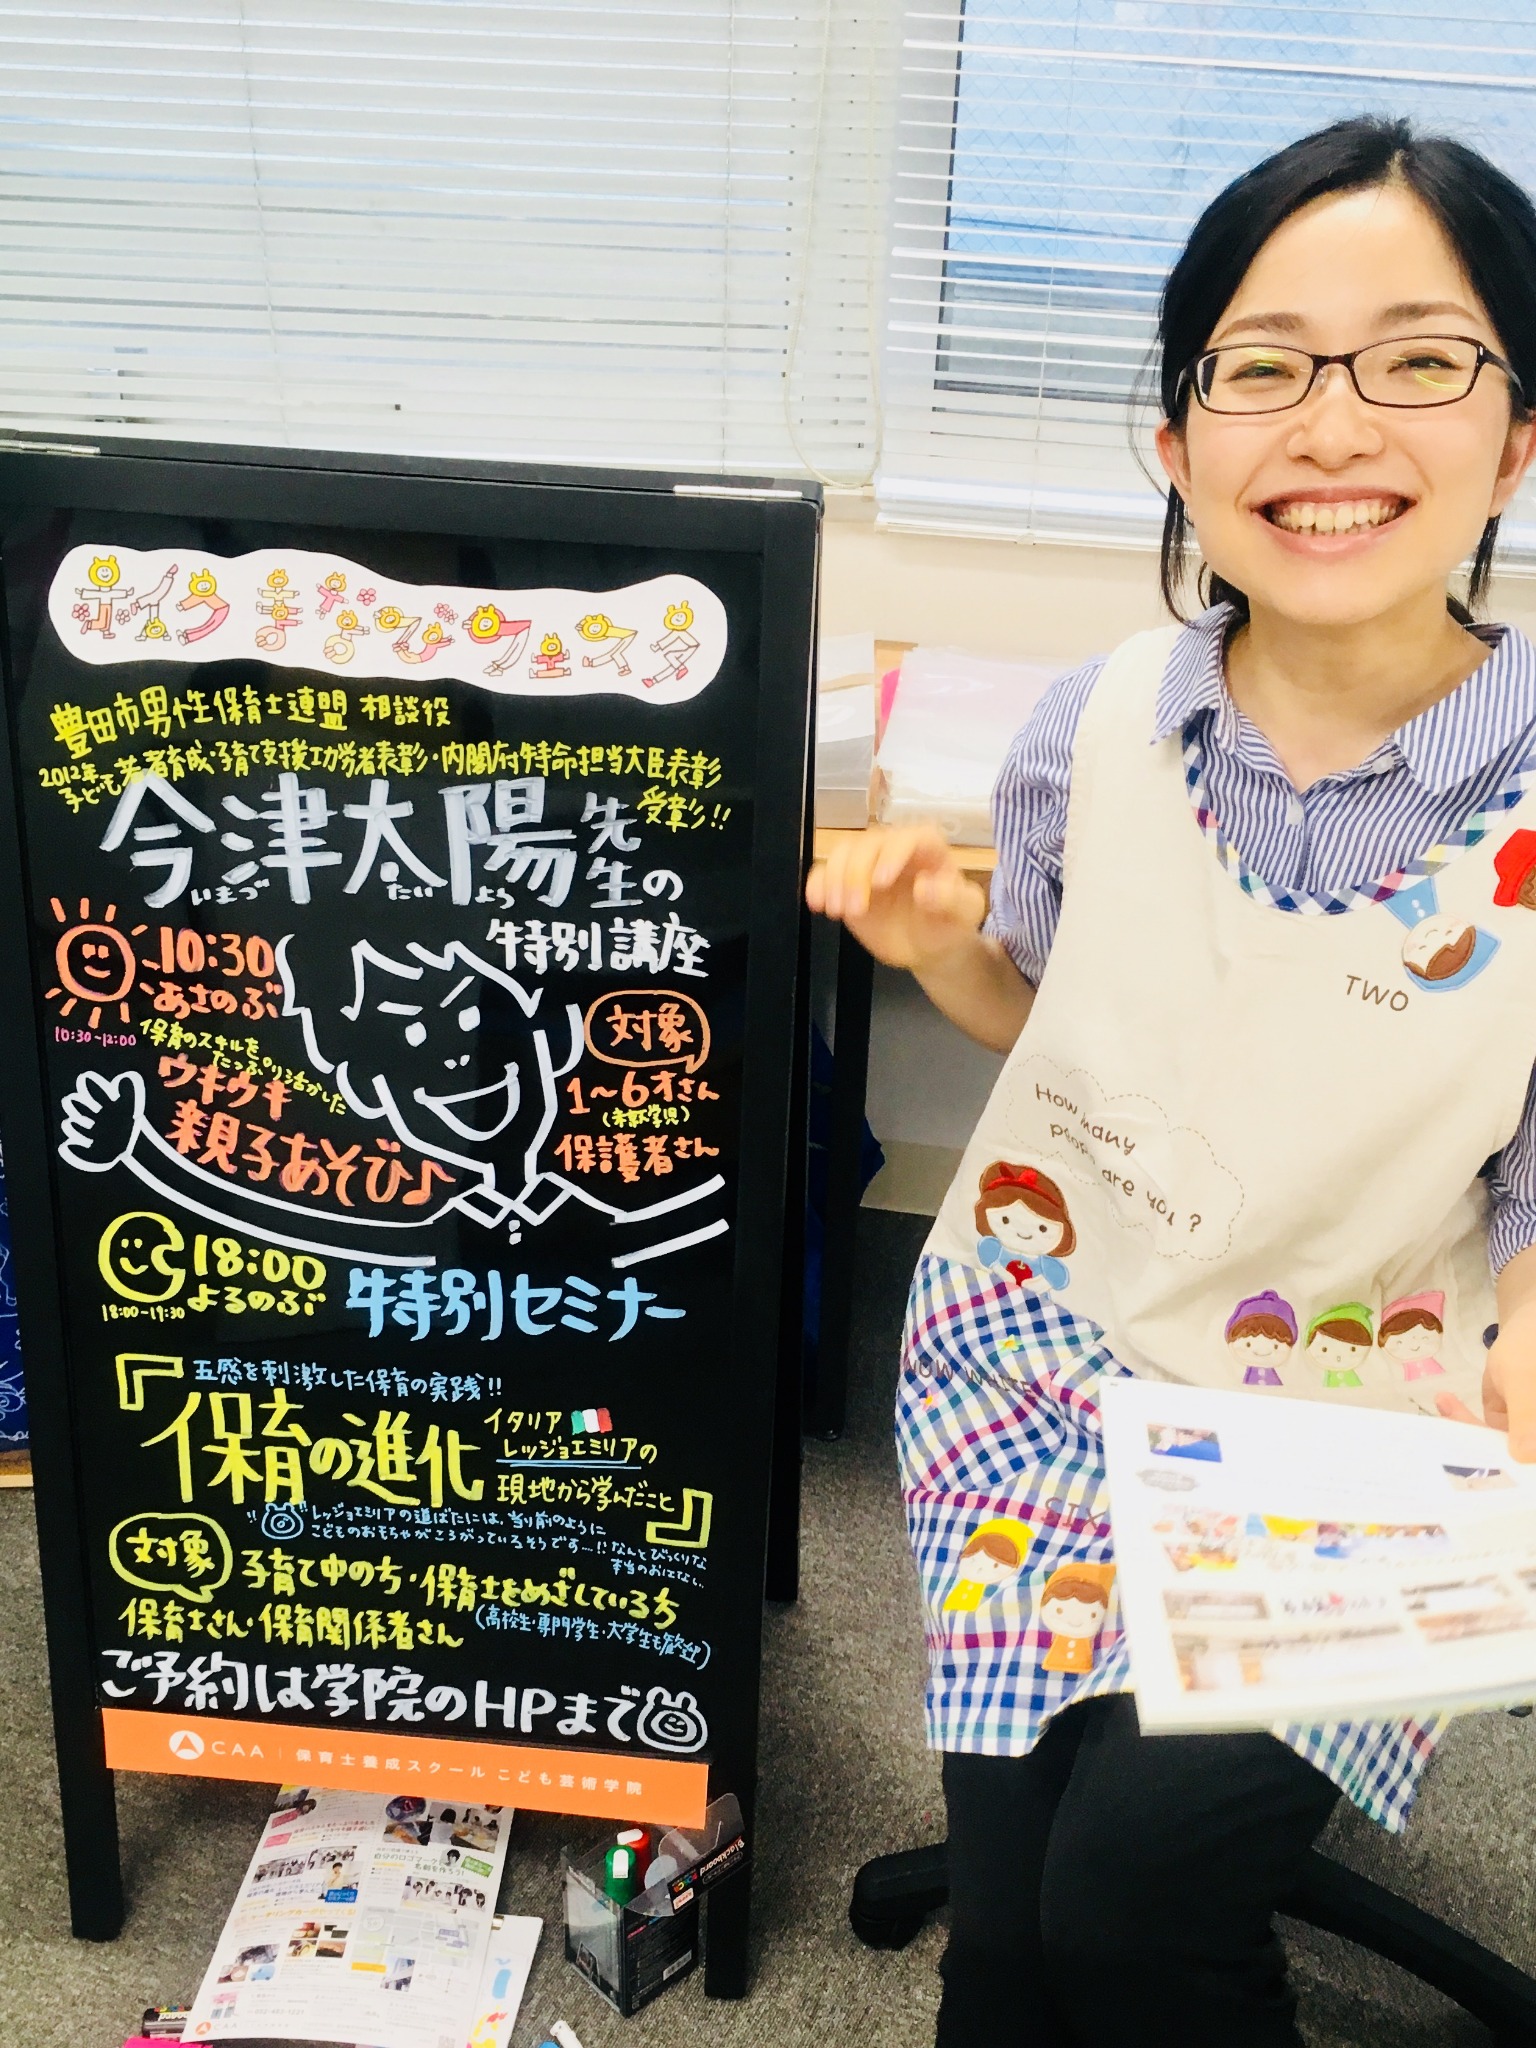 ホイクまなびフェスタ
豊田市男性保育士連盟 相談役
2012年 子ども若者育成・子育て支援功労者表彰・内閣府特命担当大臣表彰
受彰!!
今津太陽先生の
いまづ たいよう
特別講座
10:30
あさのぶ
10:30~12:00
保育のスキルを
たっぷり活かした
ウキウキ
親子あそび♪
対象
1~6才さん
(未就学児)
保護者さん
18:00
よるのぶ
18:00-19:30
特別セミナー
五感を刺激した保育の実践!!
『保育の進化
イタリア
レッジョエミリアの
現地から学んだこと』
レッジョエミリアの道ばたには、当り前のように
こどものおもちゃがころがっているそうです…!!
なんとびっくりな
本当のおはなし..
対象
子育て中の方・保育士をめざしている方
保育士さん・保育関係者さん
(高校生・専門学生・大学生も歓迎)
ご予約は学院のHPまで
CAA | 保育士養成スクール こども芸術学院
TWO
How many
people are you ?
SNOW WHITE
SIX
Blackboard
自分のロゴマーク
名刺を作ろう!
CAA